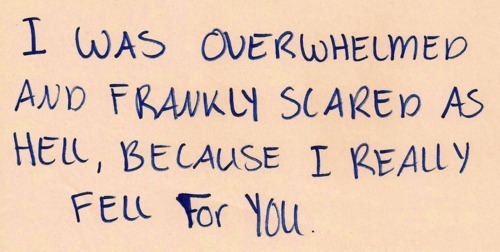 I WAS OVERWHELMED
AND FRANKLY SCARED AS
HELL, BECAUSE I REALLY
FELL For YOU.